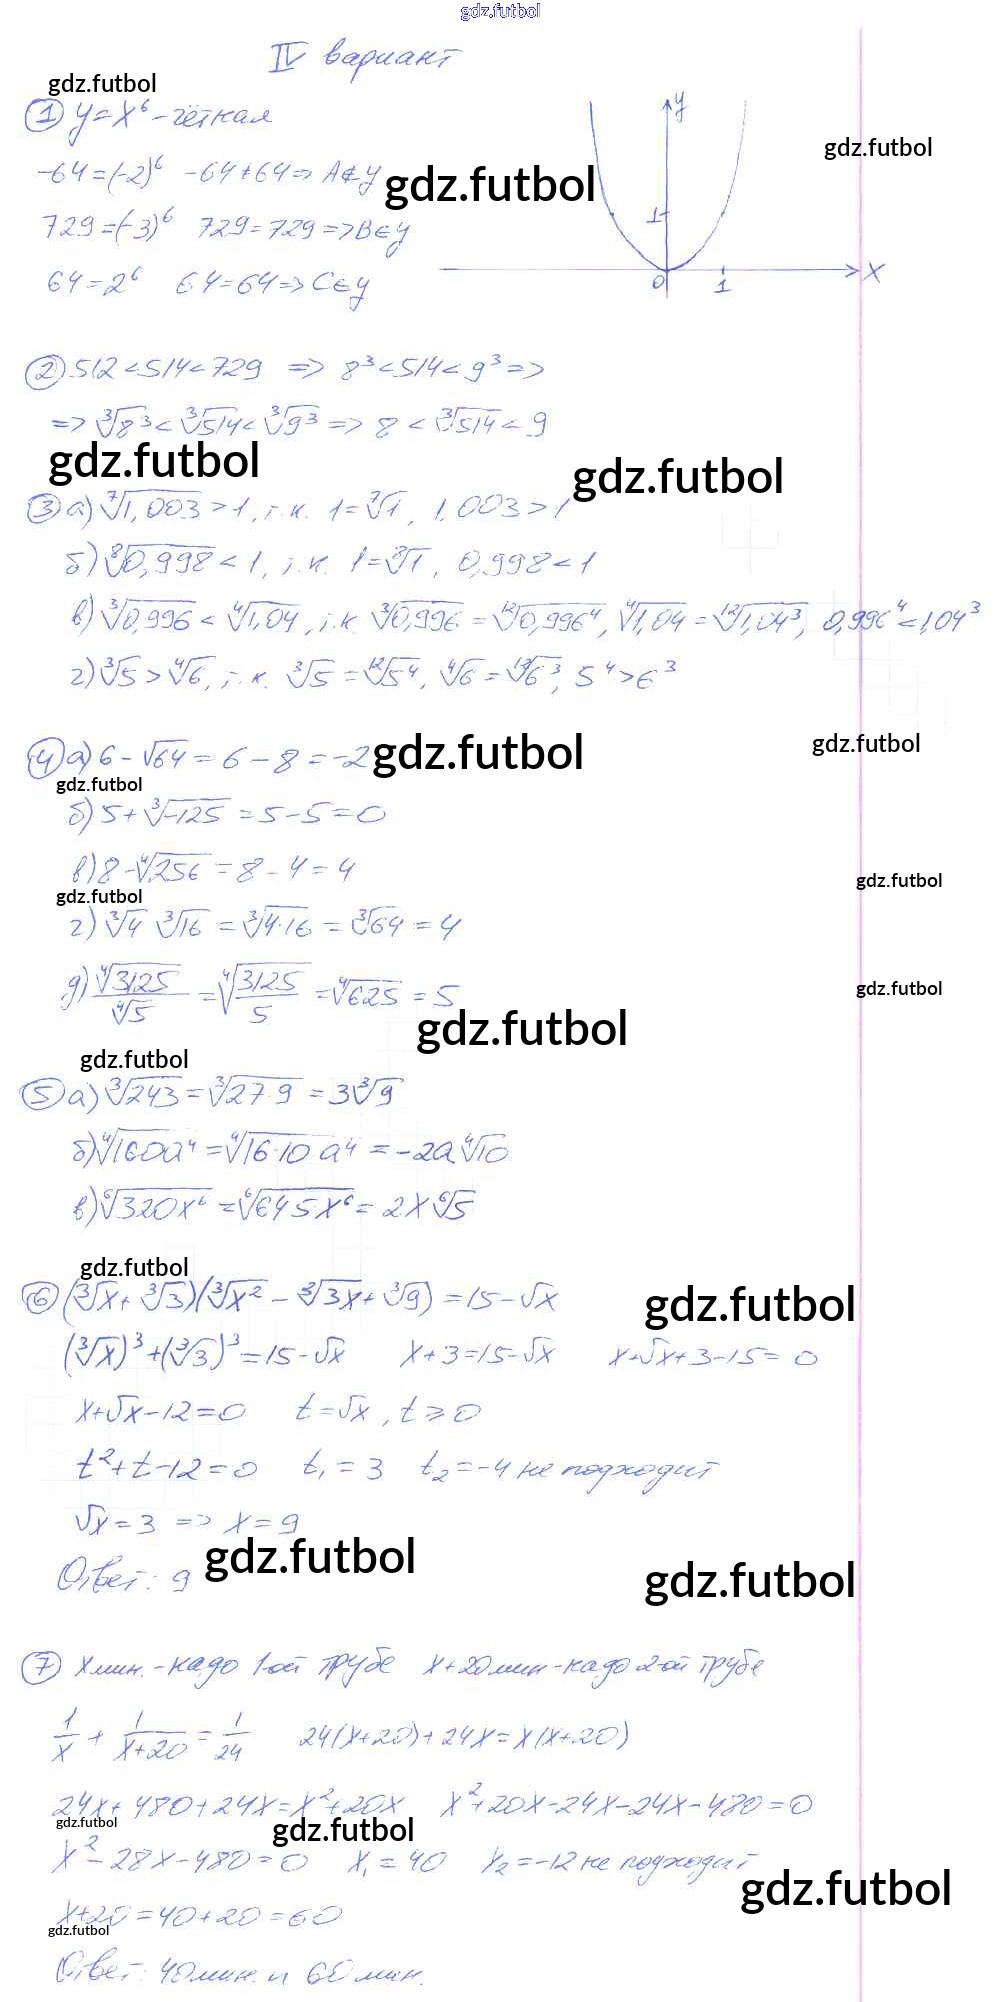 gdz.futbol
IV вариант
gdz.futbol
① y=x⁶ - чётная
y
gdz.futbol
-64=(-2)⁶ -64≠64=> A∉y
gdz.futbol
729=(-3)⁶ 729=729=>B∈y
1
64=2⁶ 64=64=>C∈y
0 1 x
② 512<514<729 => 8³<514<9³=>
=> ∛8³<∛514<∛9³ => 8<∛514<9
gdz.futbol gdz.futbol
③ а) ⁷√1,003>1, т.к. 1=⁷√1, 1,003>1
б) ⁸√0,998<1, т.к. 1=⁸√1, 0,998<1
в) ∛0,996<∜1,04, т.к. ∛0,996=¹²√0,996⁴, ∜1,04=¹²√1,04³, 0,996⁴<1,04³
г) ∛5>∜6, т.к. ∛5=¹²√5⁴, ∜6=¹²√6³, 5⁴>6³
④ а) 6-√64=6-8=-2
gdz.futbol gdz.futbol
gdz.futbol
б) 5+∛-125=5-5=0
в) 8-∜256=8-4=4
gdz.futbol gdz.futbol
г) ∛4 ∛16=∛4·16=∛64=4
д) ∜3125/∜5=∜3125/5=∜625=5
gdz.futbol
gdz.futbol
gdz.futbol
⑤ а) ∛243=∛27·9=3∛9
б) ∜160a⁴=∜16·10a⁴=-2a∜10
в) ⁶√320x⁶=⁶√64·5x⁶=2x⁶√5
gdz.futbol
⑥ (∛x+∛3)(∛x²-∛3x+∛9)=15-√x
gdz.futbol
(∛x)³+(∛3)³=15-√x x+3=15-√x x+√x+3-15=0
x+√x-12=0 t=√x, t≥0
t²+t-12=0 t₁=3 t₂=-4 не подходит
√x=3 => x=9
gdz.futbol
Ответ: 9
gdz.futbol
⑦ x мин.-надо 1-ой трубе x+20 мин-надо 2-ой трубе
1/x+1/x+20=1/24 24(x+20)+24x=x(x+20)
24x+480+24x=x²+20x x²+20x-24x-24x-480=0
gdz.futbol gdz.futbol
x²-28x-480=0 x₁=40 x₂=-12 не подходит
gdz.futbol
x+20=40+20=60
gdz.futbol
Ответ: 40 мин. и 60 мин.